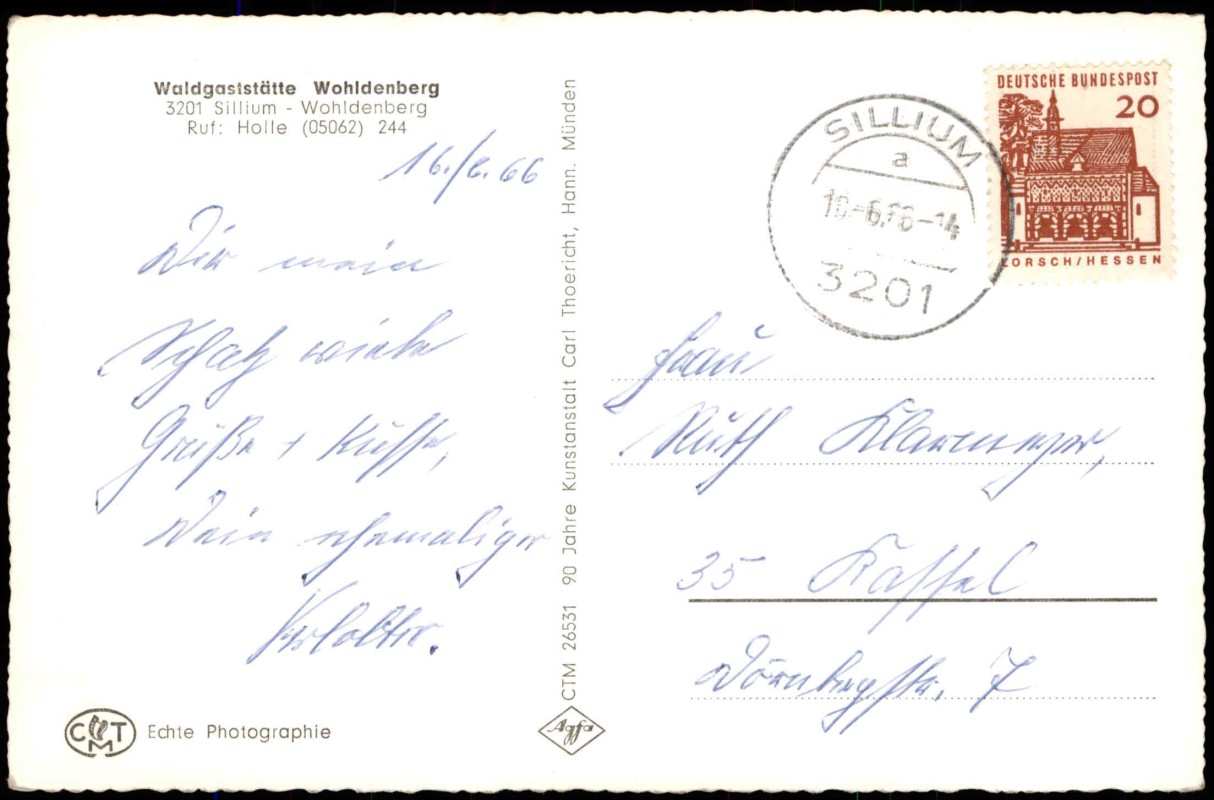 Waldgaststätte Wohldenberg
3201 Sillium - Wohldenberg
Ruf: Holle (05062) 244
16./6.66
Dir mein
Schatz viele
Grüße + Küsse,
Dein ehemaliger
Verlobter.
CMT
Echte Photographie
CTM 26531 90 Jahre Kunstanstalt Carl Thoericht, Hann. Münden
Agfa
DEUTSCHE BUNDESPOST
20
LORSCH/HESSEN
SILLIUM
a
-6.66-14
3201
Frau
Ruth Klarmeyer,
35 Kassel
Dörnbergstr. 7